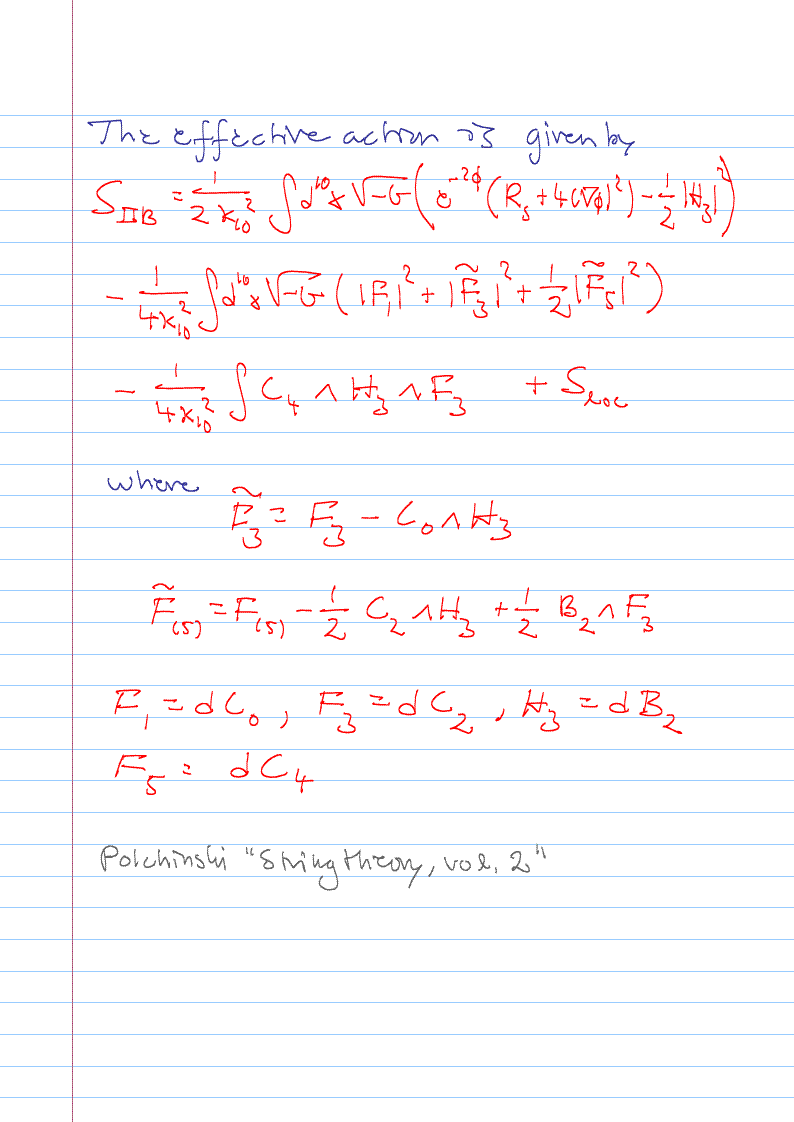 The effective action is given by
S_{IIB} = \frac{1}{2κ_{10}^2} ∫ d^{10}x √-G ( e^{-2ϕ} (R_s + 4(∇ϕ)^2) - \frac{1}{2} |H_3|^2 )
- \frac{1}{4κ_{10}^2} ∫ d^{10}x √-G ( |F_1|^2 + |\tilde{F}_3|^2 + \frac{1}{2} |\tilde{F}_5|^2 )
- \frac{1}{4κ_{10}^2} ∫ C_4 ∧ H_3 ∧ F_3 + S_{loc}
where
\tilde{F}_3 = F_3 - C_0 ∧ H_3
\tilde{F}_{(5)} = F_{(5)} - \frac{1}{2} C_2 ∧ H_3 + \frac{1}{2} B_2 ∧ F_3
F_1 = dC_0, F_3 = dC_2, H_3 = dB_2
F_5 = dC_4
Polchinski "String theory, vol. 2"